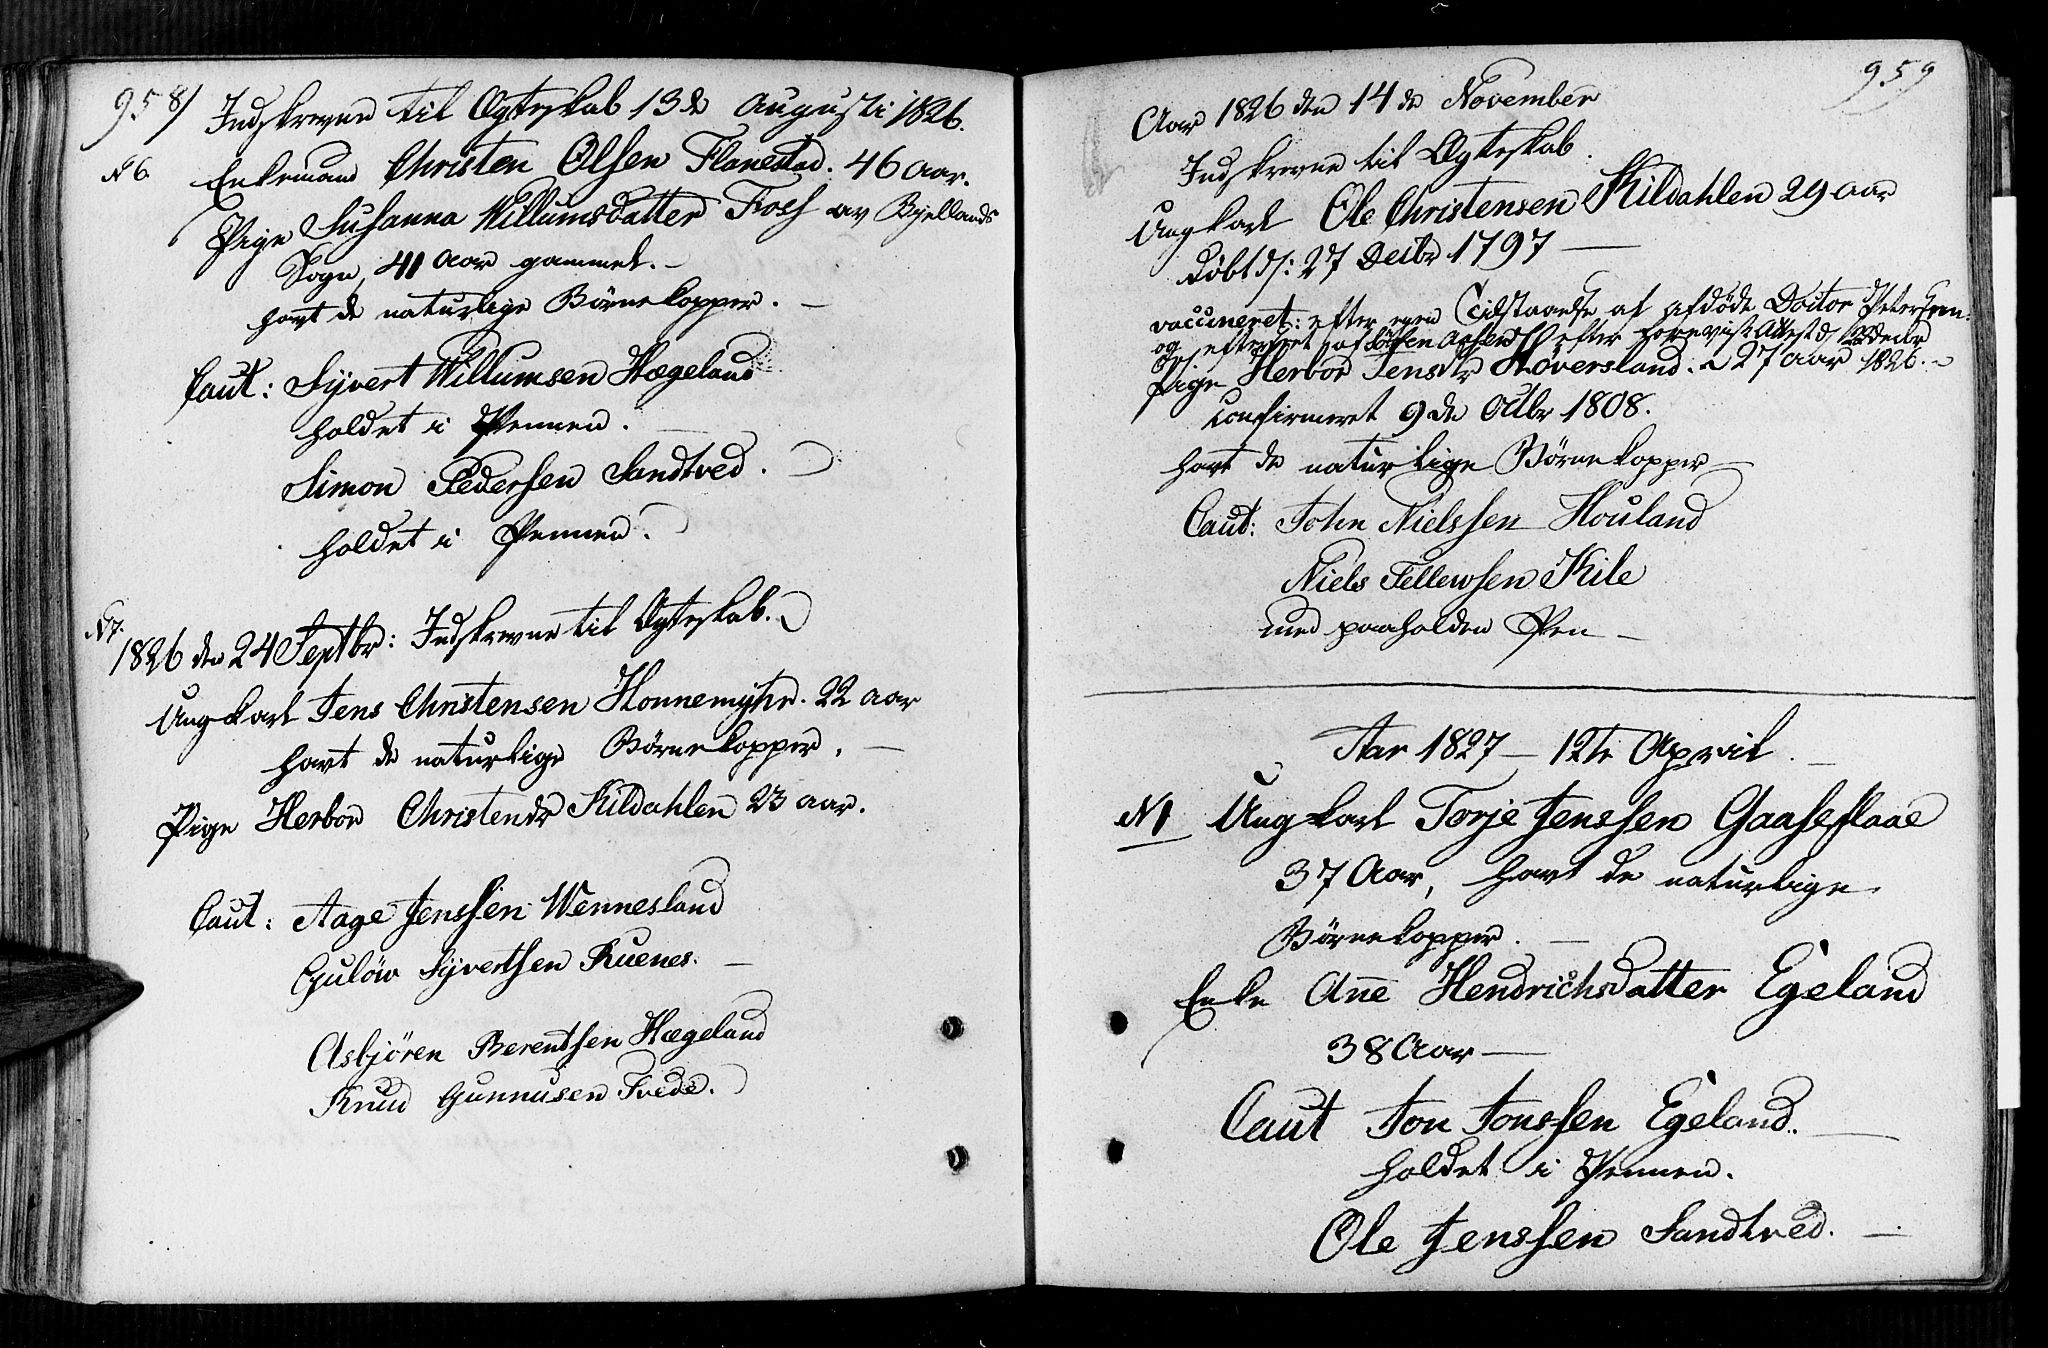 958/
Indskrevne til Ægteskab 13de Augusti 1826.
N 6.
Enkemand Christen Olsen Flanestad. 46 Aar.
Pige Susanna Willumsdatter Foss av Bjellands
Sogn, 41 Aar gammel. –
havt de naturlige Børnekopper. –
Caut: Syvert Willumsen Hægeland
holdet i Pennen.
Simon Pedersen Sandtved.
holdet i Pennen.
N 7.
1826 den 24 Septbr: Indskrevne til Ægteskab.
Ungkarl Jens Christensen Honnemyhr. 22 aar
havt de naturlige Børnekopper. –
Pige Herbor Christensdr Kildahlen 23 aar.
Caut: Aage Jenssen Wennesland
Guløw Syvertsen Ruenes. –
Asbjören Berentsen Hægeland
Knud Gunnusen Tvede.
959
Aar 1826 den 14de November
Indskrevne til Ægteskab.
Ungkarl Ole Christensen Kildahlen 29 aar
døbt d: 27 Decbr 1797 –
vaccineret: efter egen Tilstaaelse af afdöde Doctor Petersen.
og efterseet af efter forevist Attest d
Pige Herbor Jensdr Höversland. 27 aar 1826. –
confirmeret 9de Octbr 1808.
havt de naturlige Børnekopper –
Caut: John Nielssen Houland
Niels Tellewsen Kile
med paaholden Pen –
Aar 1827 – 12te April. –
N 1 Ungkarl Torje Jenssen Gaaseflaae
37 Aar, havt de naturlige
Børnekopper. –
Enke Ane Hendrichsdatter Egeland
38 Aar –
Caut Jon Jonssen Egeland. –
holdet i Pennen.
Ole Jenssen Sandtved. –